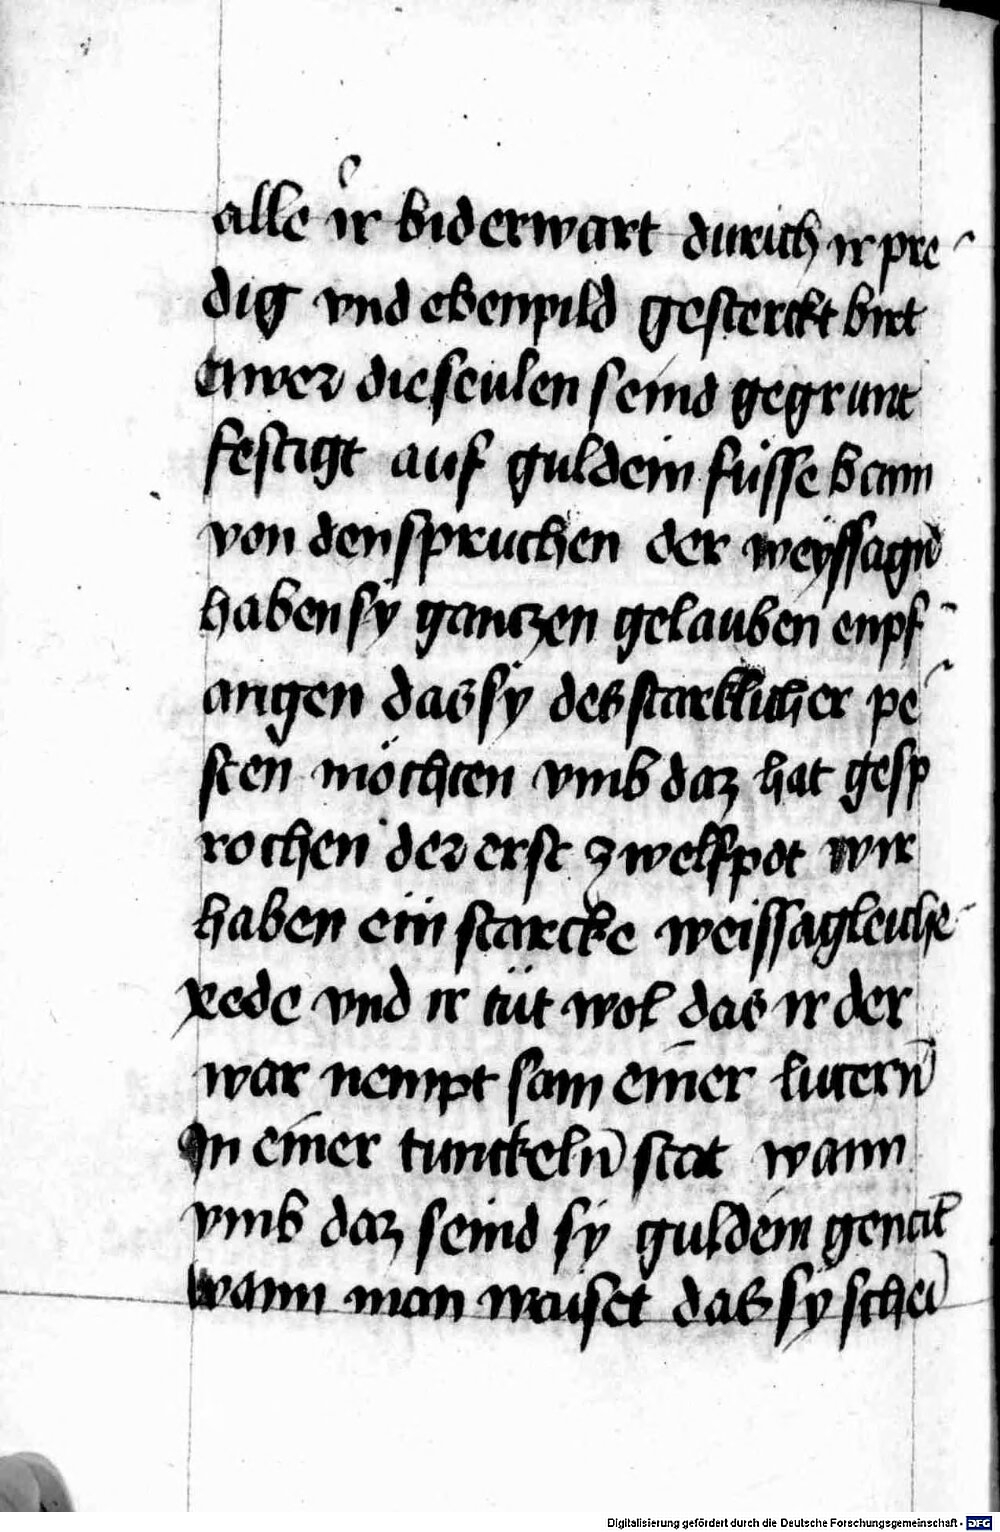 alle ir biderwart durich ir pre
dig vnd ebenpild gesterckt birt
Awer die seulen seind gegrunt
festigt auf guldein füsse bann
von den spruchen der weyssagn̄
haben sy gantzen gelauben enpf
angen das sy des starklicher pe
sten möchten vmb daz hat gesp
rochen der erst zwelfpot wir
haben ein starcke weissagleiche
rede vnd ir tüt wol das ir der
war nempt sam einer lucern̄
In einer tunckeln̄ stat wann
vmb daz seind sy guldein genātt
wann man waiset das sy schei
Digitalisierung gefördert durch die Deutsche Forschungsgemeinschaft - DFG